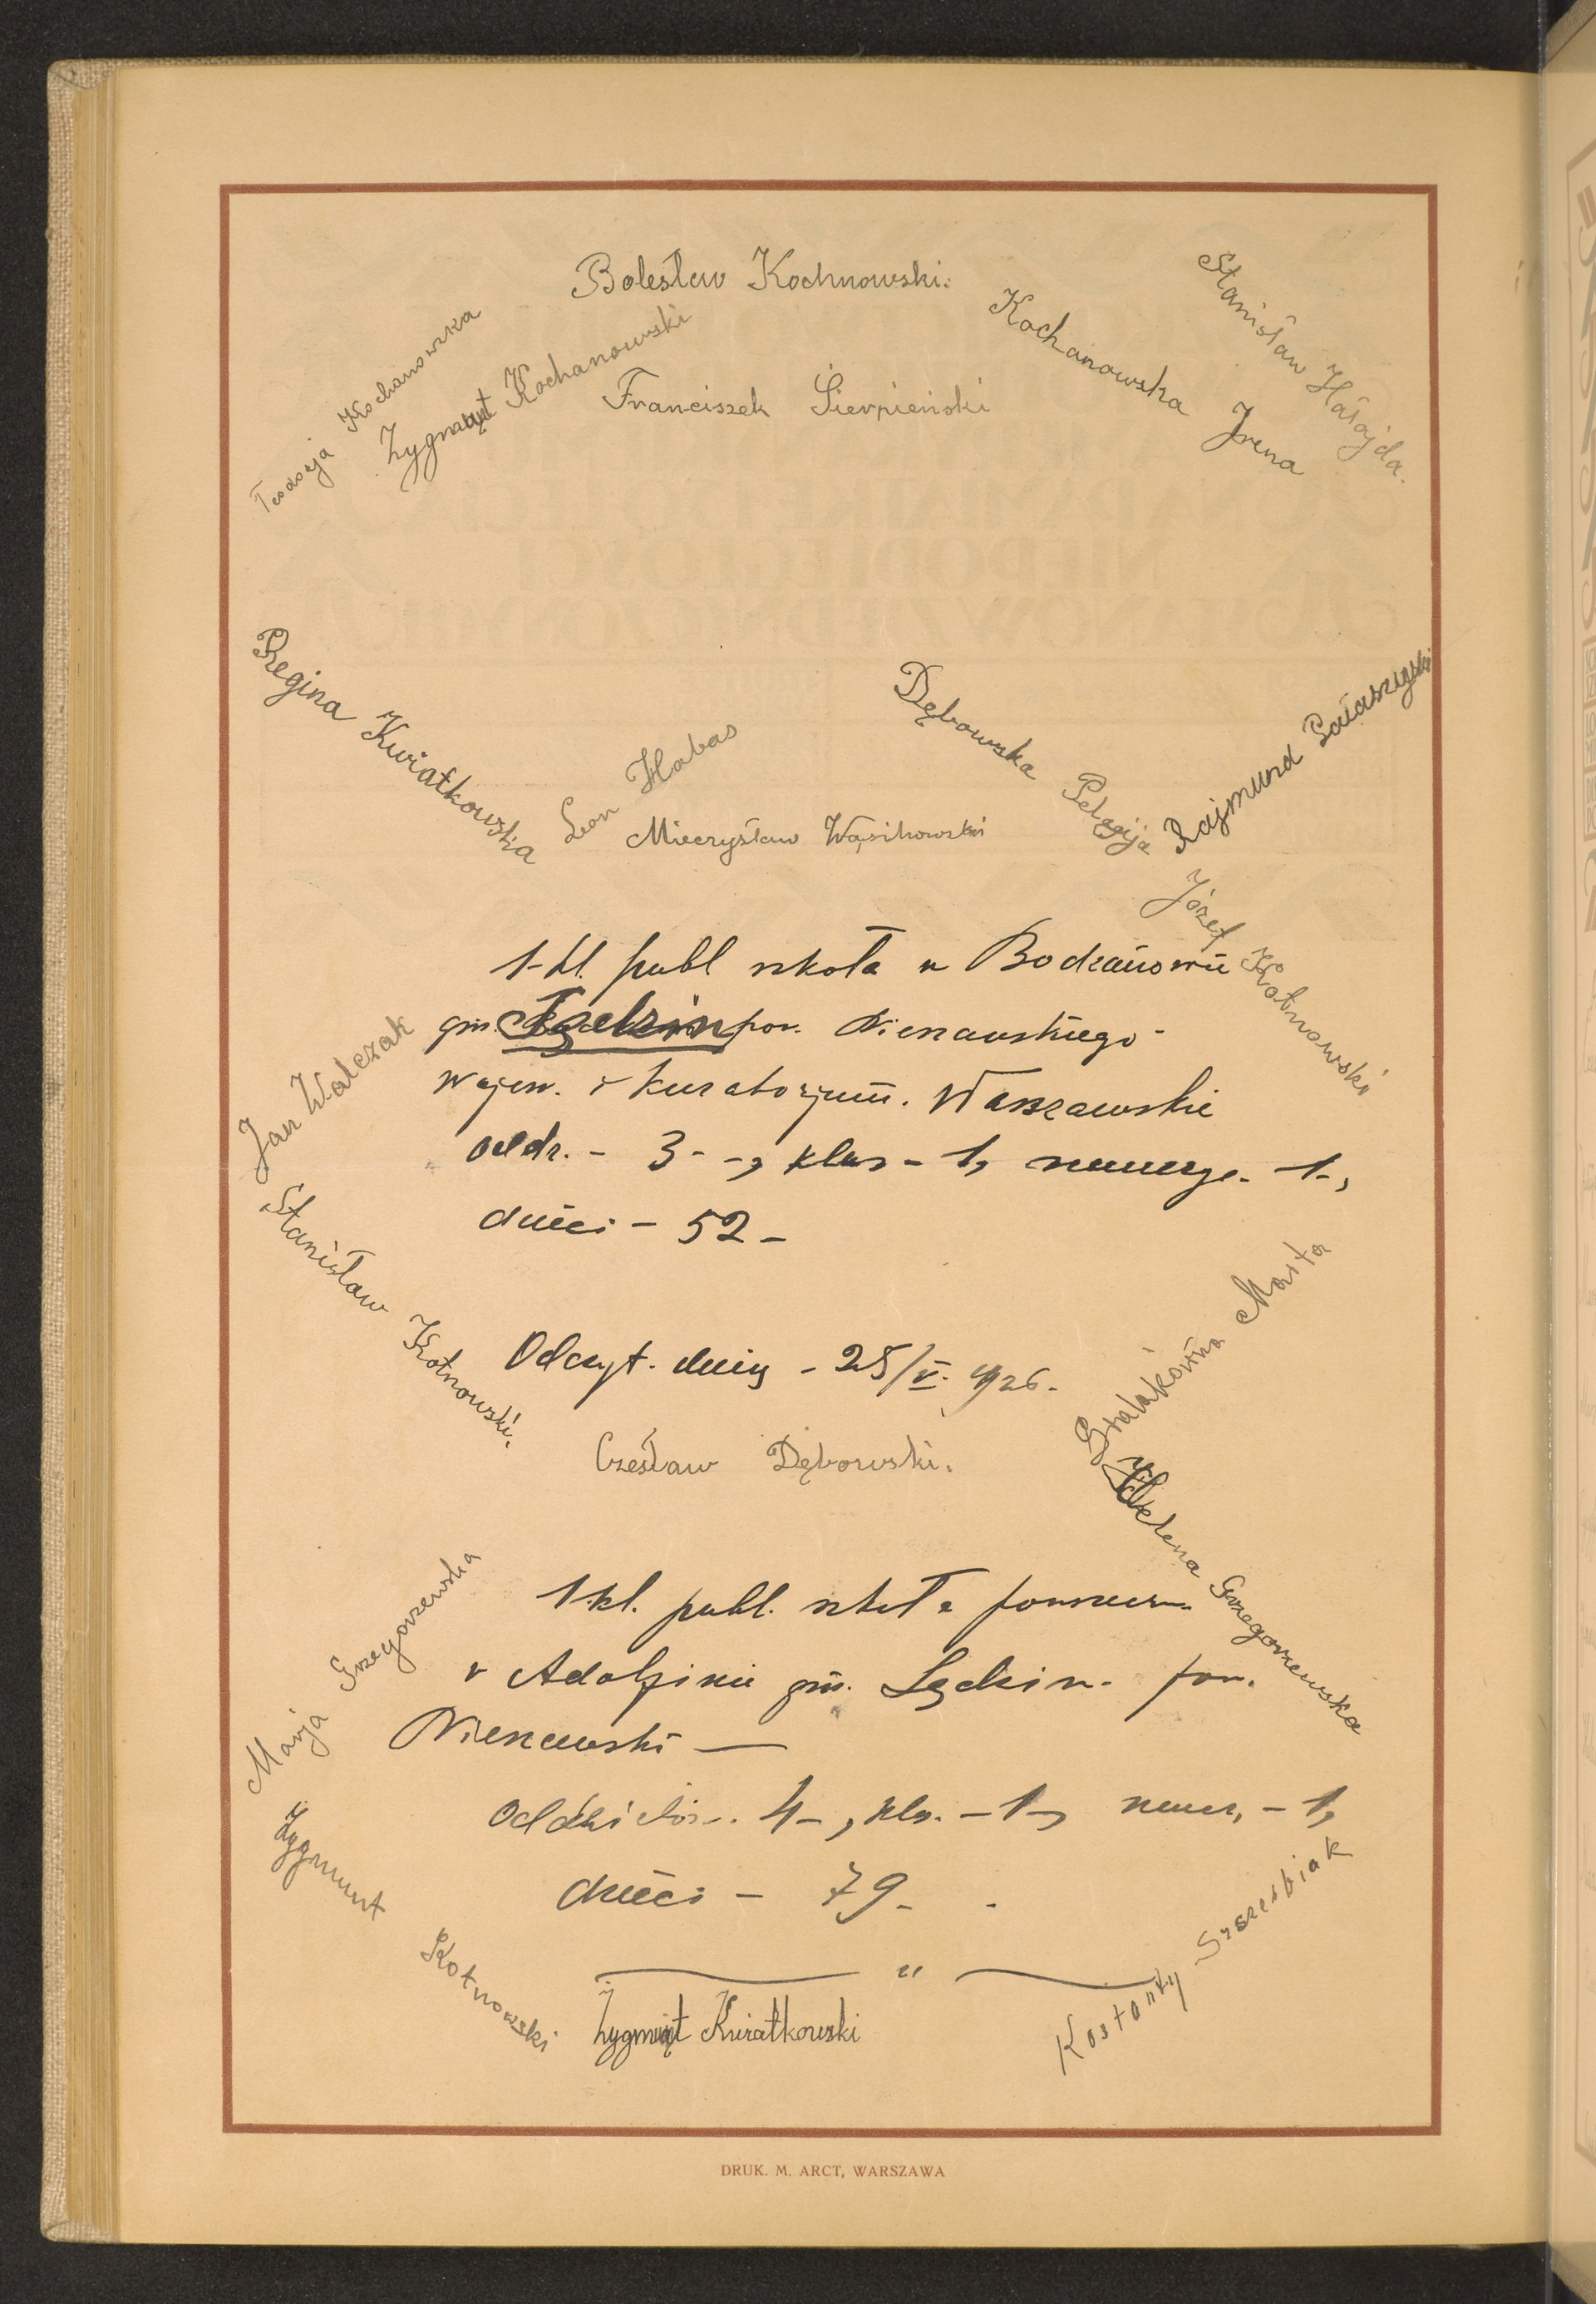 Bolesław Kochnowski.
Stanisław Hałajda.
Kochanowska Irena
Kochanowska
Zygmunt Kochanowski
Franciszek Sierpieński
Regina Kwiatkowska
Leon Habas
Mieczysław Wąsikowski
Dębowska Pelagija
Rajmund
Józef Kotnowski
1-kl. publ szkoła w Bodzanowie
gm. pow. Nieszawskiego -
wojew. i Kuratorjum. Warszawskie
oddz. - 3 - -, klas - 1, nauczyc. - 1-,
dzieci - 52 -
Jan Walczak
Stanisław Kotnowski.
Odczyt. dnia - 25/V. 1926.
Czesław Dębowski.
Marta
Helena Grzegorzewska
1 kl. publ. szkoła powszechn.
w Adolfinie gm. Sędzin. pow.
Nieszawski —
Oddziałów. 4 -, klas. - 1 -, naucz. - 1,
dzieci - 79 - .
Marja Grzegorzewska
Zygmunt Kotnowski
Zygmąt Kwiatkowski
Kostanty Szczesbiak
DRUK. M. ARCT, WARSZAWA